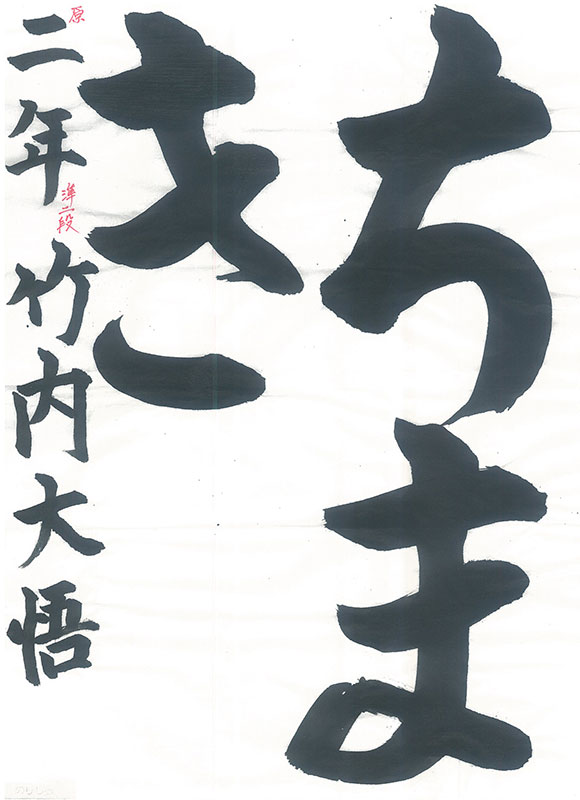 ちま
き
二年 竹内大悟
原
準二段